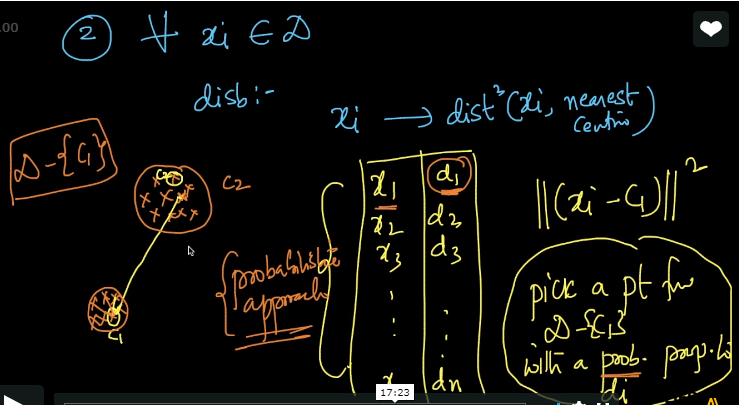 .00
② ∀ xi ∈ D
disb:-
xi → dist²(xi, nearest
centro)
D-{C₁}
C₂
C₂
C₁
probabilistic
approach
x₁ d₁
x₂ d₂
x₃ d₃
⋮ ⋮
x dn
||(xi - C₁)||²
pick a pt for
D-{C₁}
with a prob. prop. to
di
17:23